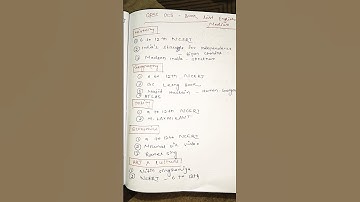 GPSC DCS - Book List English Medium
History
① 6 to 12th NCERT
② India's struggle for independence
- Bipan Chandra
③ Modern India - spectrum
Geography
① 6 to 12th NCERT
② GC Leong book
③ Majid Husain - Human
Atlas
Polity
① 6 to 12th NCERT
② M. LAXMIKANT
Economics
① 9 to 12th NCERT
② Mrunal sir video
③ Ramesh Singh
ART & Culture
① Nitin Singhania
② NCERT - 6 to 12th